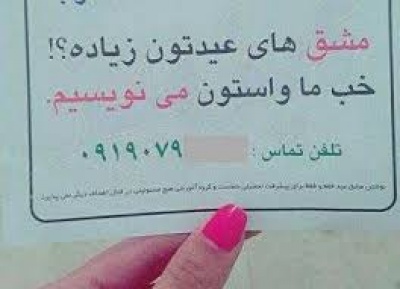 مشق های عیدتون زیاده؟!
خب ما واستون می نویسیم.
تلفن تماس : ۰۹۱۹۰۷۹